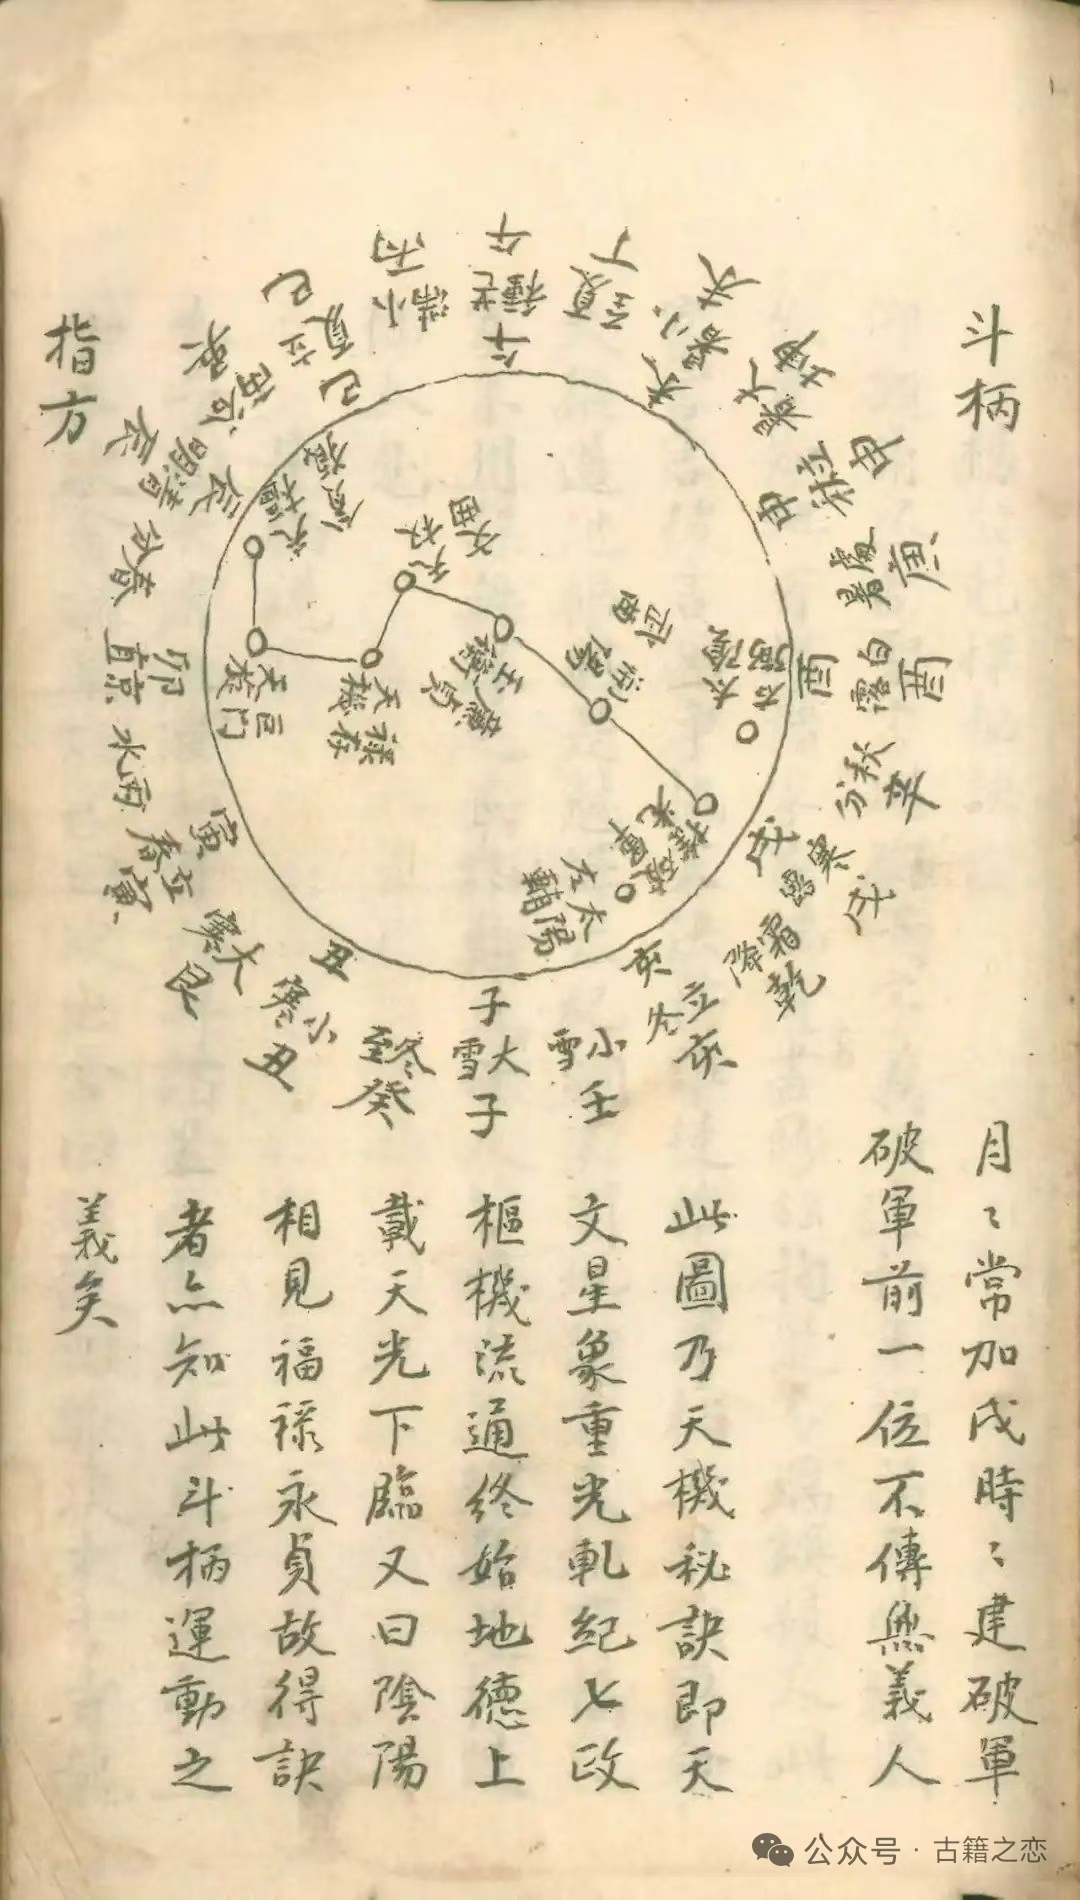 斗柄
指方
午
丁
未
坤
申
庚
酉
辛
戌
乾
亥
壬
子
癸
丑
艮
寅
卯
辰
巽
巳
丙
芒種
夏至
小暑
大暑
立秋
處暑
白露
秋分
寒露
霜降
立冬
小雪
大雪
冬至
小寒
大寒
立春
雨水
春分
清明
立夏
小滿
午
未
申
酉
戌
亥
子
丑
寅
辰
巳
天樞
貪狼
天璇
巨門
天機
祿存
天权
文曲
玉衡
廉貞
武曲
破軍
太陰
右弼
太陽
左輔
月〻常加戌時〻建破軍
破軍前一位不傳無義人
此圖乃天機秘訣即天
文星象重光軋紀七政
樞機流通終始地德上
載天光下臨又曰陰陽
相見福祿永貞故得訣
者点知此斗柄運動之
義矣
公众号·古籍之恋